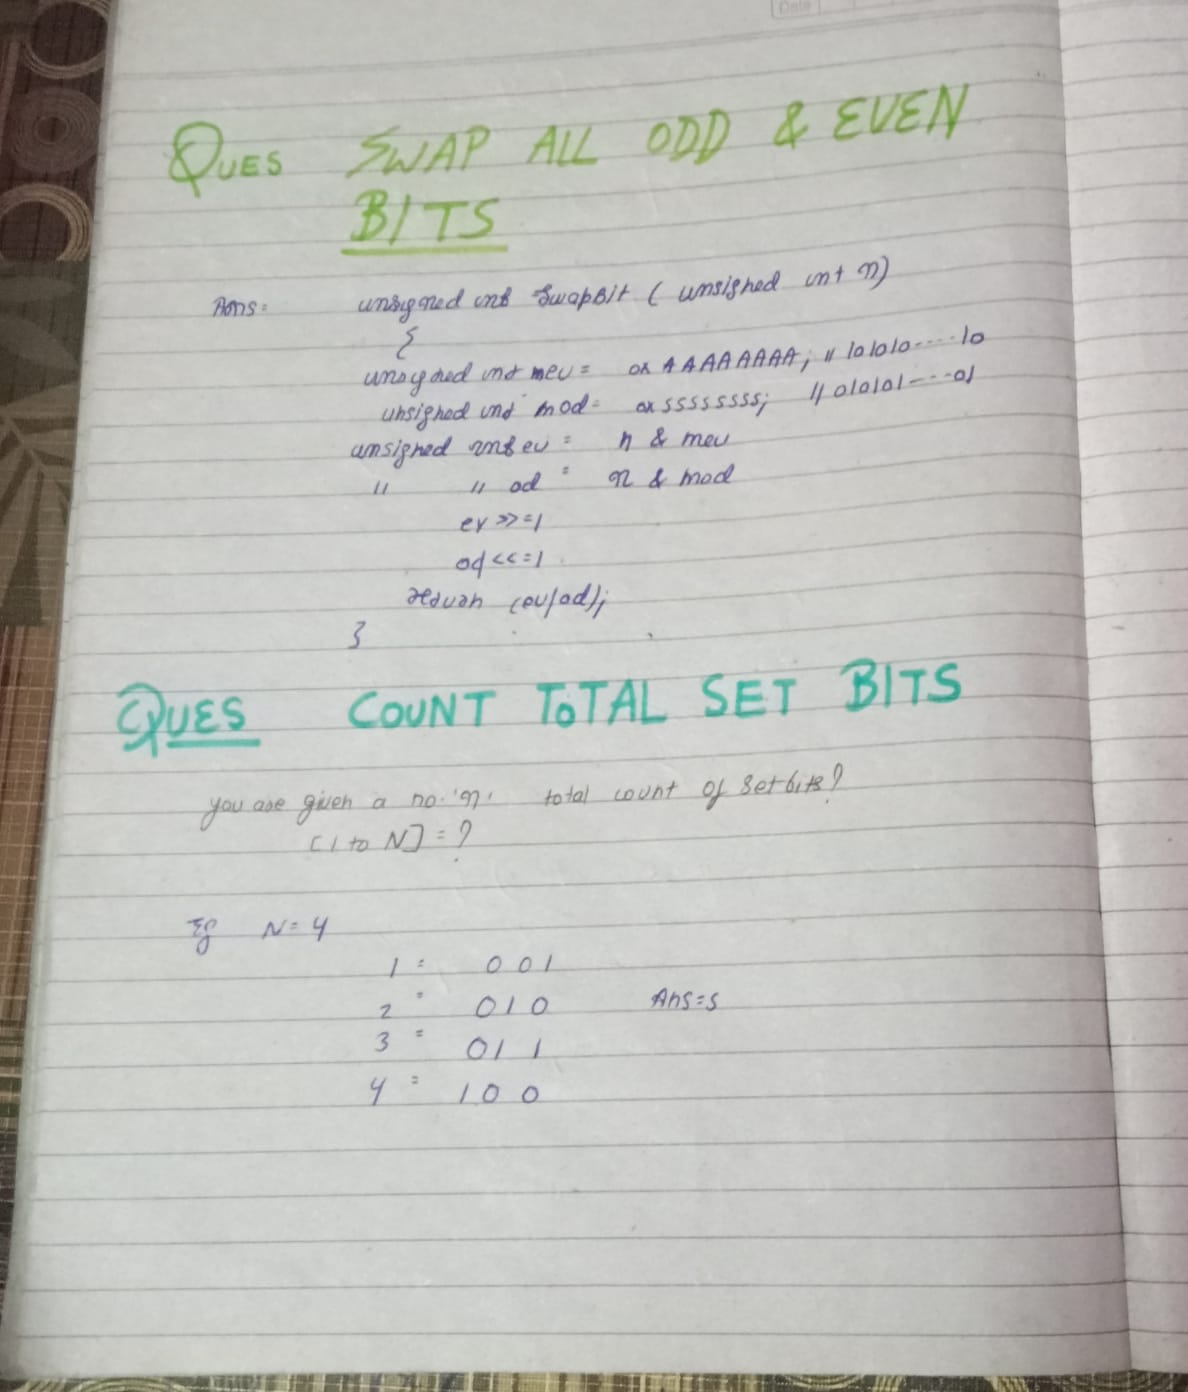 Date
Ques SWAP ALL ODD & EVEN
BITS
Ans: unsigned int SwapBit ( unsigned int n)
{
unsigned int mev = 0x AAAAAAAA; // 101010----10
unsigned int mod = 0x 55555555; // 010101---01
unsigned int ev = n & mev
" " od = n & mod
ev >>=1
od <<=1
return (ev|od);
}
QUES COUNT TOTAL SET BITS
you are given a no. 'n' total count of set bits?
[1 to N] = ?
Eg N=4
1 = 001
2 = 010 Ans=5
3 = 011
4 = 100